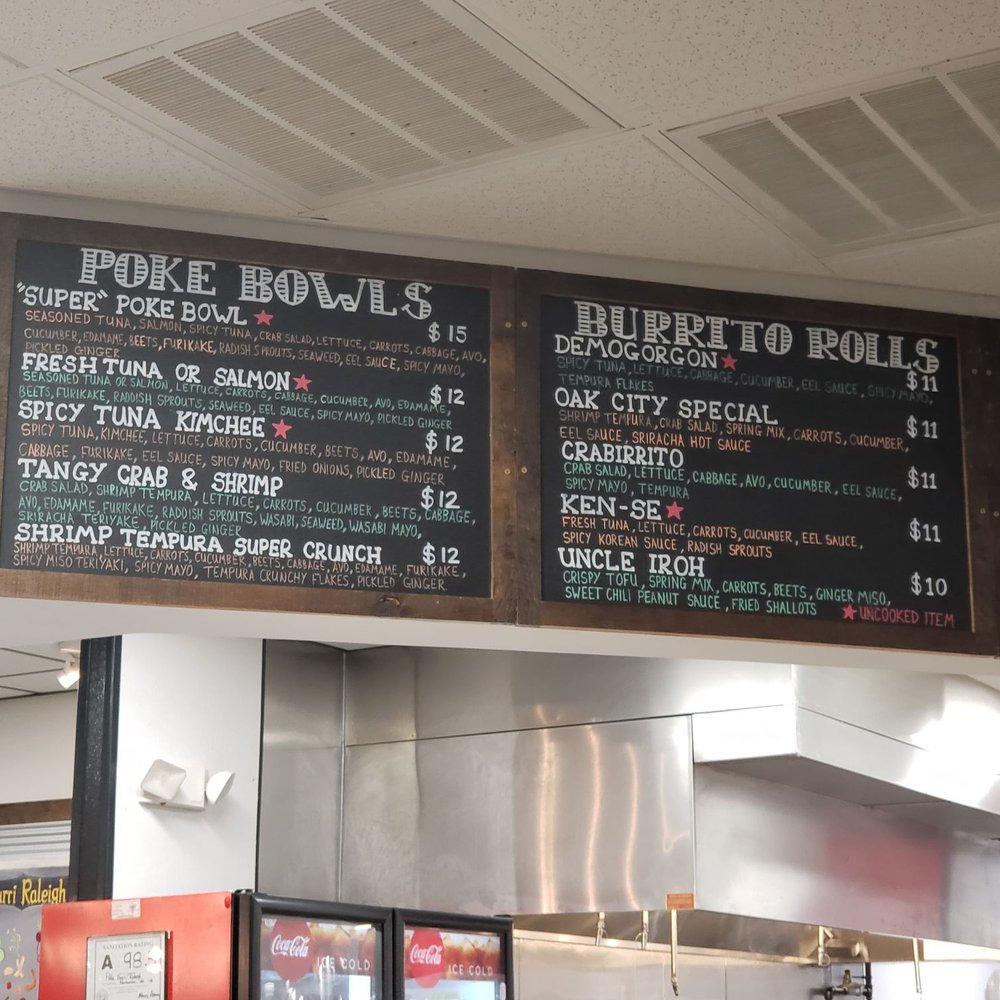 POKE BOWLS
"SUPER" POKE BOWL ★
$15
SEASONED TUNA, SALMON, SPICY TUNA, CRAB SALAD, LETTUCE, CARROTS, CABBAGE, AVO,
CUCUMBER, EDAMAME, BEETS, FURIKAKE, RADISH SPROUTS, SEAWEED, EEL SAUCE, SPICY MAYO,
PICKLED GINGER
FRESH TUNA OR SALMON ★
$12
SEASONED TUNA OR SALMON, LETTUCE, CARROTS, CABBAGE, CUCUMBER, AVO, EDAMAME,
BEETS, FURIKAKE, RADDISH SPROUTS, SEAWEED, EEL SAUCE, SPICY MAYO, PICKLED GINGER
SPICY TUNA KIMCHEE ★
$12
SPICY TUNA, KIMCHEE, LETTUCE, CARROTS, CUCUMBER, BEETS, AVO, EDAMAME,
CABBAGE, FURIKAKE, EEL SAUCE, SPICY MAYO, FRIED ONIONS, PICKLED GINGER
TANGY CRAB & SHRIMP
$12
CRAB SALAD, SHRIMP TEMPURA, LETTUCE, CARROTS, CUCUMBER, BEETS, CABBAGE,
AVO, EDAMAME, FURIKAKE, RADDISH SPROUTS, WASABI, SEAWEED, WASABI MAYO,
SRIRACHA TERIYAKE, PICKLED GINGER
SHRIMP TEMPURA SUPER CRUNCH
$12
SHRIMP TEMPURA, LETTUCE, CARROTS, CUCUMBER, BEETS, CABBAGE, AVO, EDAMAME, FURIKAKE,
SPICY MISO TERIYAKI, SPICY MAYO, TEMPURA CRUNCHY FLAKES, PICKLED GINGER
BURRITO ROLLS
DEMOGORGON ★
$11
SPICY TUNA, LETTUCE, CABBAGE, CUCUMBER, EEL SAUCE, SPICY MAYO,
TEMPURA FLAKES
OAK CITY SPECIAL
$11
SHRIMP TEMPURA, CRAB SALAD, SPRING MIX, CARROTS, CUCUMBER,
EEL SAUCE, SRIRACHA HOT SAUCE
CRABIRRITO
$11
CRAB SALAD, LETTUCE, CABBAGE, AVO, CUCUMBER, EEL SAUCE,
SPICY MAYO, TEMPURA
KEN-SE ★
$11
FRESH TUNA, LETTUCE, CARROTS, CUCUMBER, EEL SAUCE,
SPICY KOREAN SAUCE, RADISH SPROUTS
UNCLE IROH
$10
CRISPY TOFU, SPRING MIX, CARROTS, BEETS, GINGER MISO,
SWEET CHILI PEANUT SAUCE, FRIED SHALLOTS
★ UNCOOKED ITEM
urri Raleigh
SANITATION RATING
A 98
Coca-Cola
ICE COLD
Coca-Cola
ICE COLD